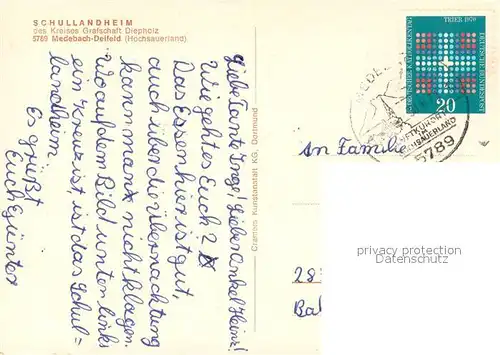 SCHULLANDHEIM
des Kreises Grafschaft Diepholz
5789 Medebach-Deifeld (Hochsauerland)
Liebe Tante Inge! Lieber Onkel Heinz!
Wie geht es Euch?
Das Essen hier ist gut,
auch über die Übernachtung
kann man nicht klagen.
Wo auf dem Bild unten links
ein Kreuz ist, ist das Schul=
landheim.
Es grüßt
Euch Günter
Cramers Kunstanstalt KG. Dortmund
TRIER 1970
DEUTSCHER KATHOLIKENTAG
DEUTSCHE BUNDESPOST
20
MEDEB
FTKURORT
HSAUERLAND
5789
An Familie
privacy protection
Datenschutz
28
Ba